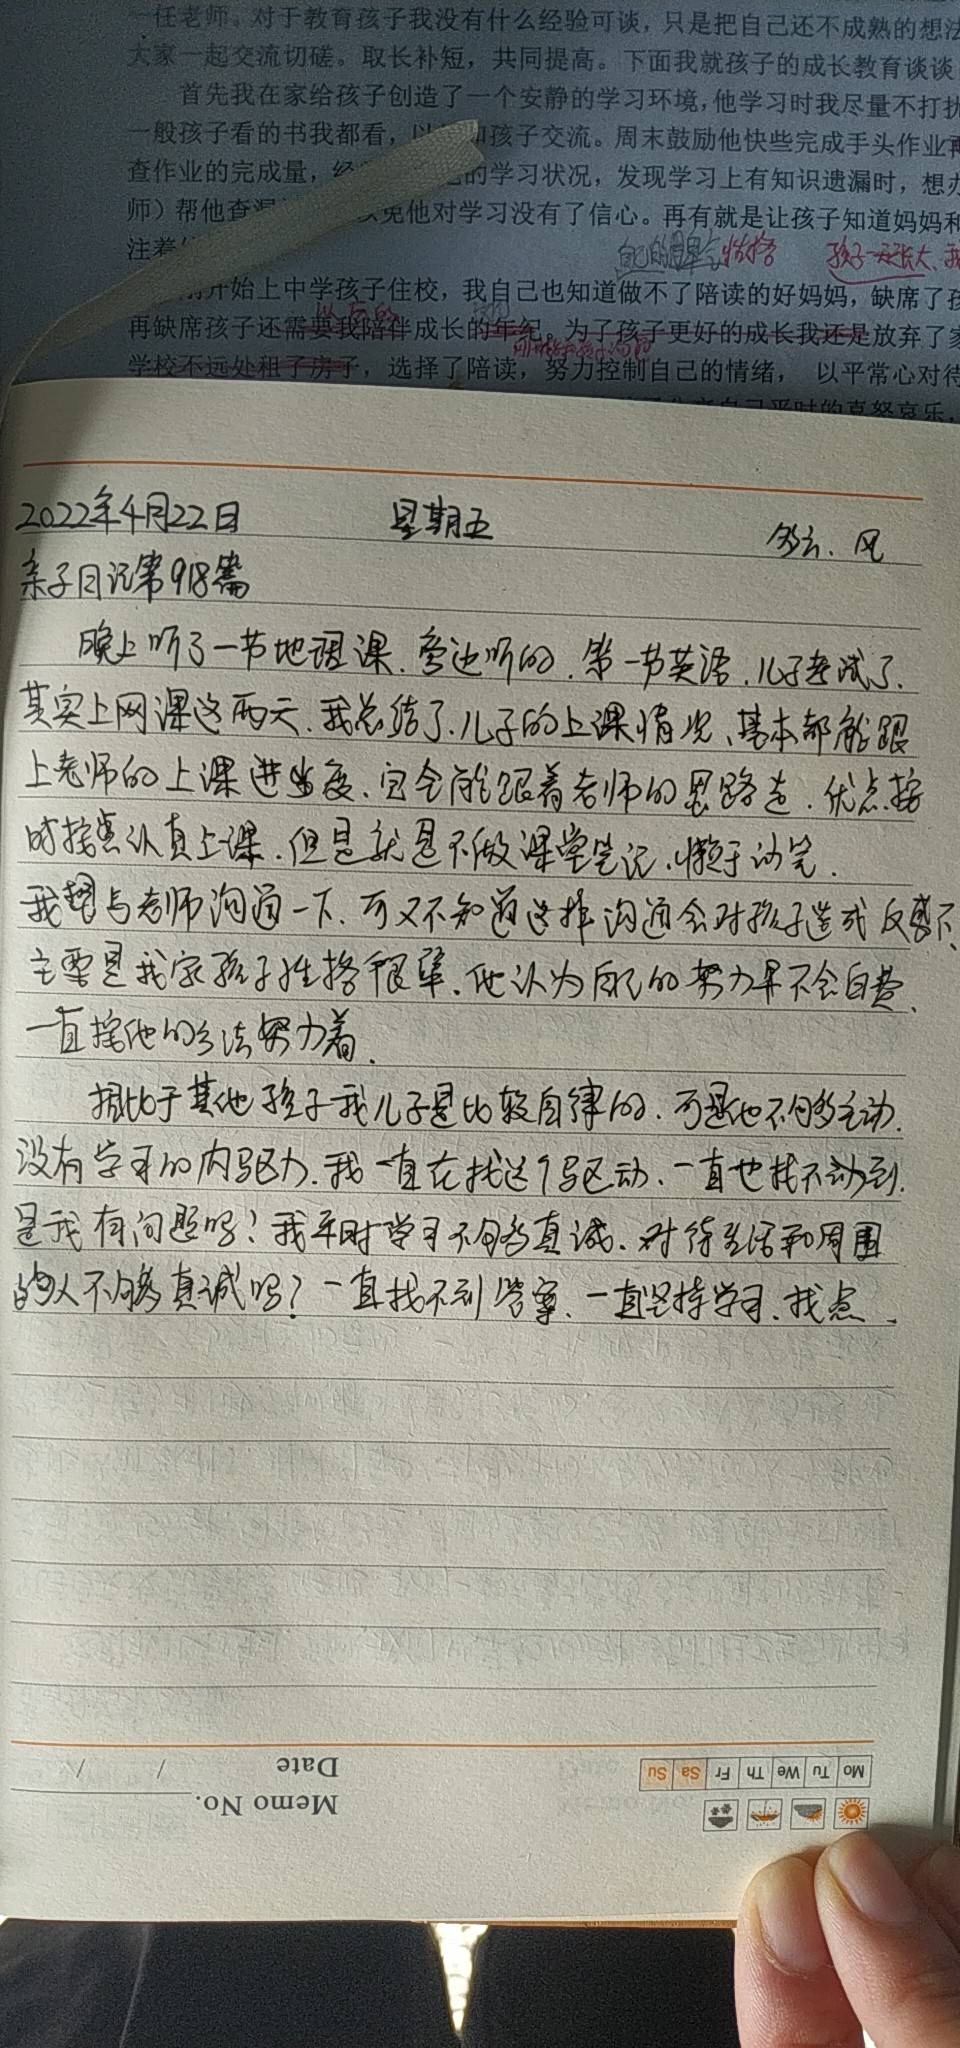 一任老师。对于教育孩子我没有什么经验可谈，只是把自己还不成熟的想法
大家一起交流切磋。取长补短，共同提高。下面我就孩子的成长教育谈谈
首先我在家给孩子创造了一个安静的学习环境，他学习时我尽量不打扰
一般孩子看的书我都看，以 和孩子交流。周末鼓励他快些完成手头作业再
查作业的完成量，经 的学习状况，发现学习上有知识遗漏时，想办
师）帮他查漏 以免他对学习没有了信心。再有就是让孩子知道妈妈和
注着
性格 孩子一天天长大、我
刚开始上中学孩子住校，我自己也知道做不了陪读的好妈妈，缺席了孩
以后的
再缺席孩子还需要我陪伴成长的年纪。为了孩子更好的成长我还是放弃了家
学校不远处租了房子，选择了陪读，努力控制自己的情绪， 以平常心对待
自己平时的喜怒哀乐，
2022年4月22日 星期五 多云、风
亲子日记第918篇
晚上听了一节地理课、旁边听的、第一节英语、儿子考试了、
其实上网课这两天、我总结了、儿子的上课情况、基本都能跟
上老师的上课进度、完全能跟着老师的思路走、优点按
时按点认真上课、但是就是不做课堂笔记、懒于动笔、
我想与老师沟通一下、可又不知道这样沟通会对孩子造成反感不、
主要是我家孩子性格很犟、他认为自己的努力果不会白费、
一直按他的方法努力着、
相比于其他孩子我儿子是比较自律的、可是他不够主动、
没有学习的内驱力、我一直在找这个驱动、一直也找不到、
是我有问题吗？我平时学习不够真诚、对待生活和周围
的人不够真诚吗？一直找不到答案、一直坚持学习、找点、
Mo Tu We Th Fr Sa Su
Date / /
Memo No.